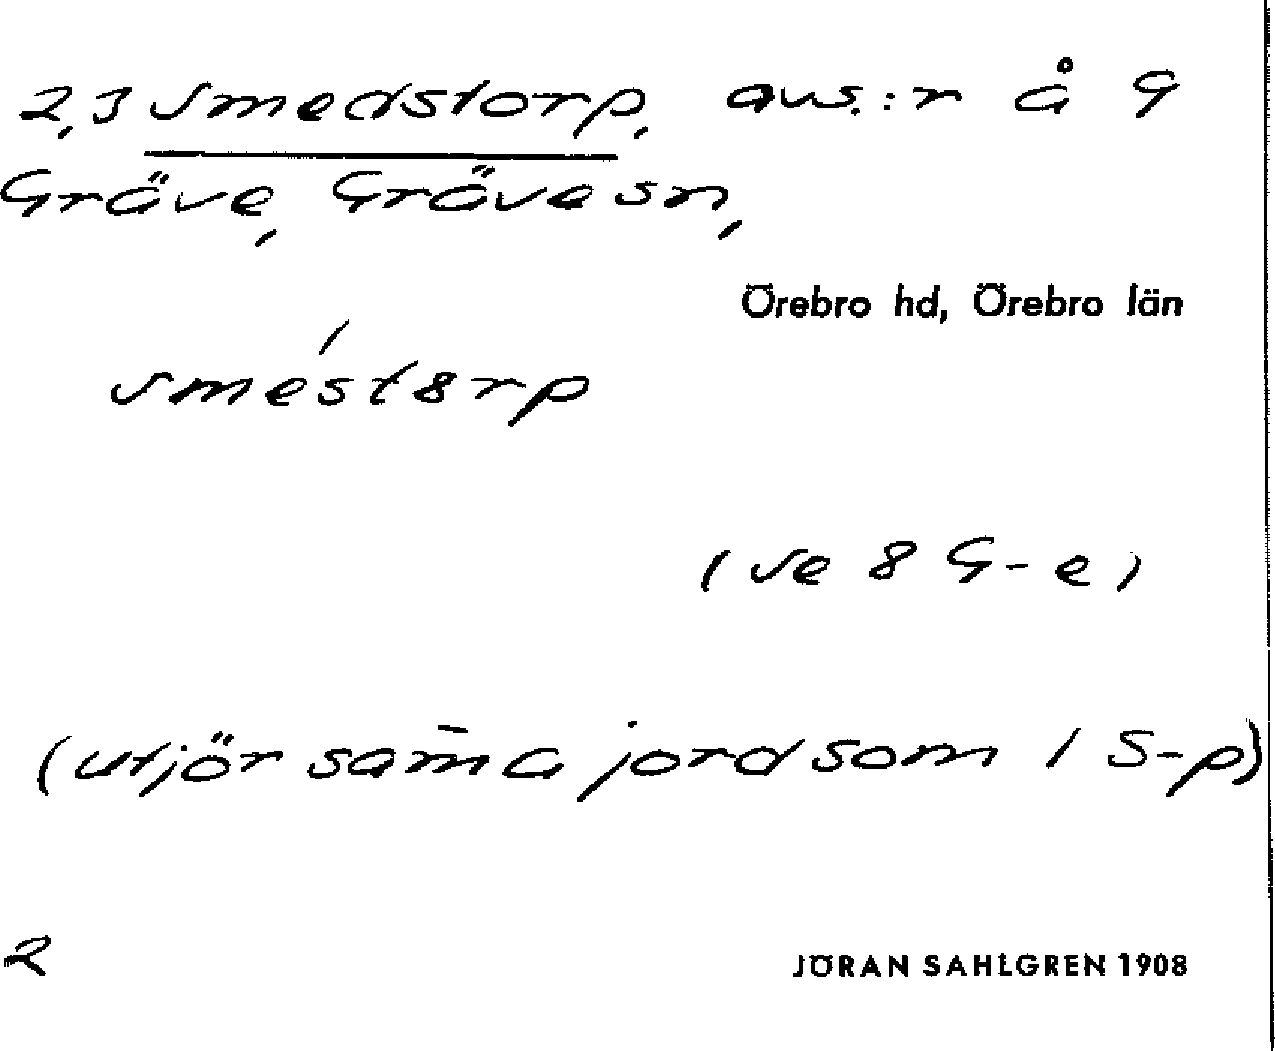 2,3 Smedstorp, avs.:r å 9
Gräve, Gräve sn,
Örebro hd, Örebro län
sme´st8rp
(Se 8 G-e)
(utjör sam̄a jord som 1 S-p)
2
JÖRAN SAHLGREN 1908